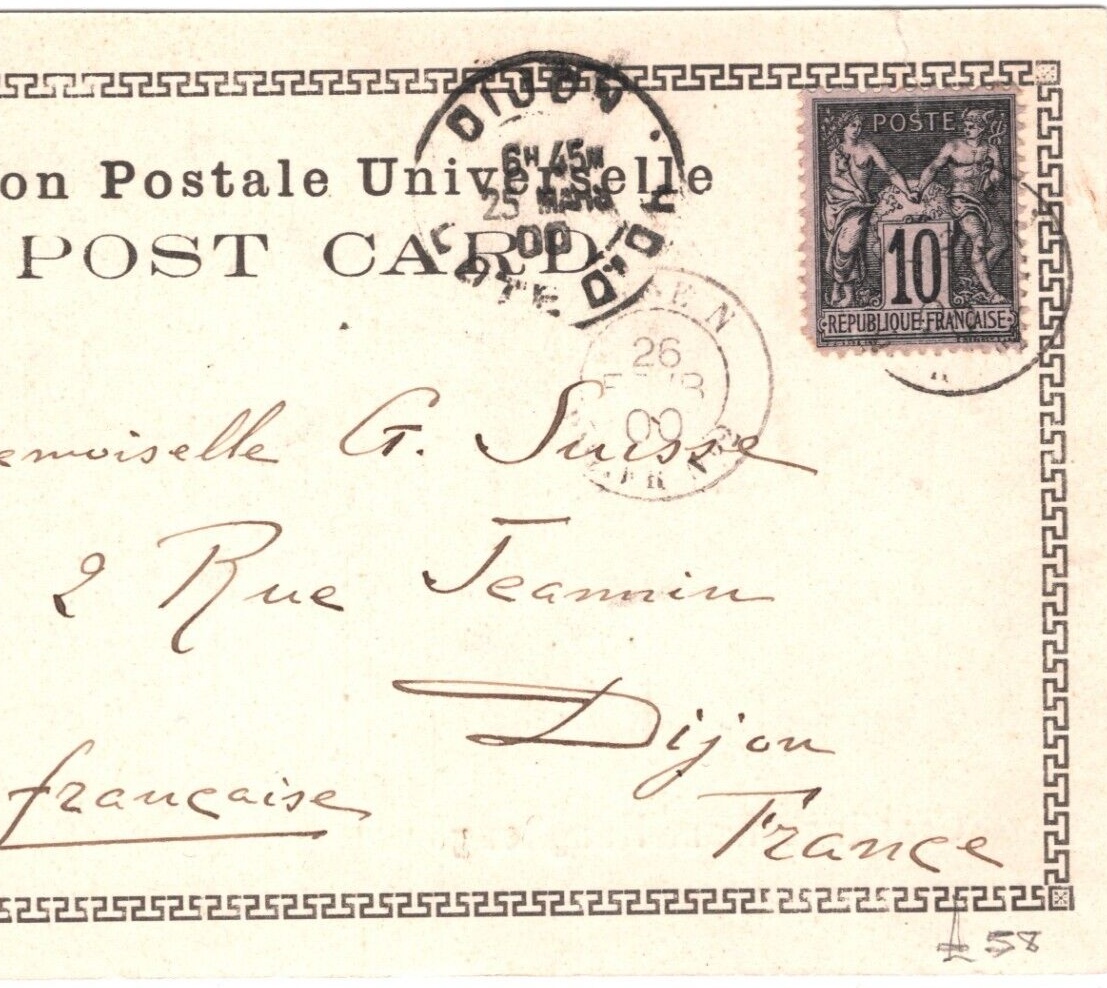 on Postale Universelle
POST CARD
DIJON
6H 45M
25 MARS
00
CÔTE D'OR
POSTE
10
REPUBLIQUE FRANÇAISE
26
FEVR
00
emoiselle G. Suisse
2 Rue Jeannin
Dijon
française
France
£ 58